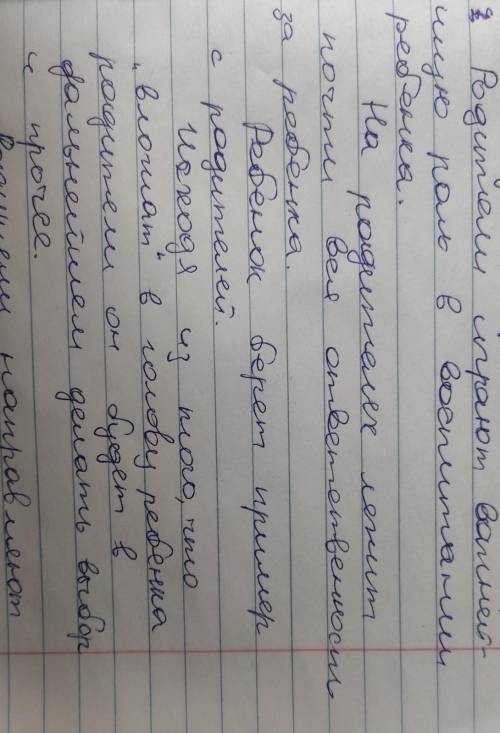 Родители играют важней-
шую роль в воспитании
ребенка.
На родителях лежит
почти вся ответственность
за ребенка.
Ребенок берет пример
с родителей.
Исходя из того, что
"вложат" в голову ребенка
родители он будет в
дальнейшем делать выбор
и прочее.
направляют